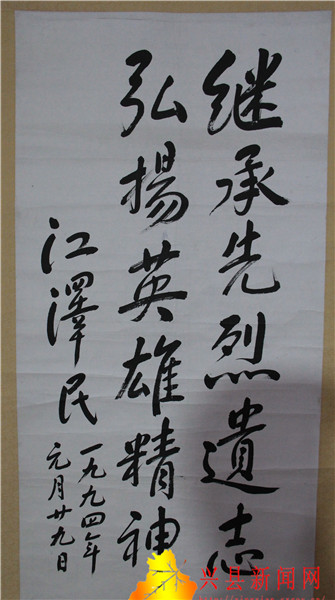 继承先烈遺志
弘揚英雄精神
江澤民
一九九四年
元月廿九日
兴县新闻网